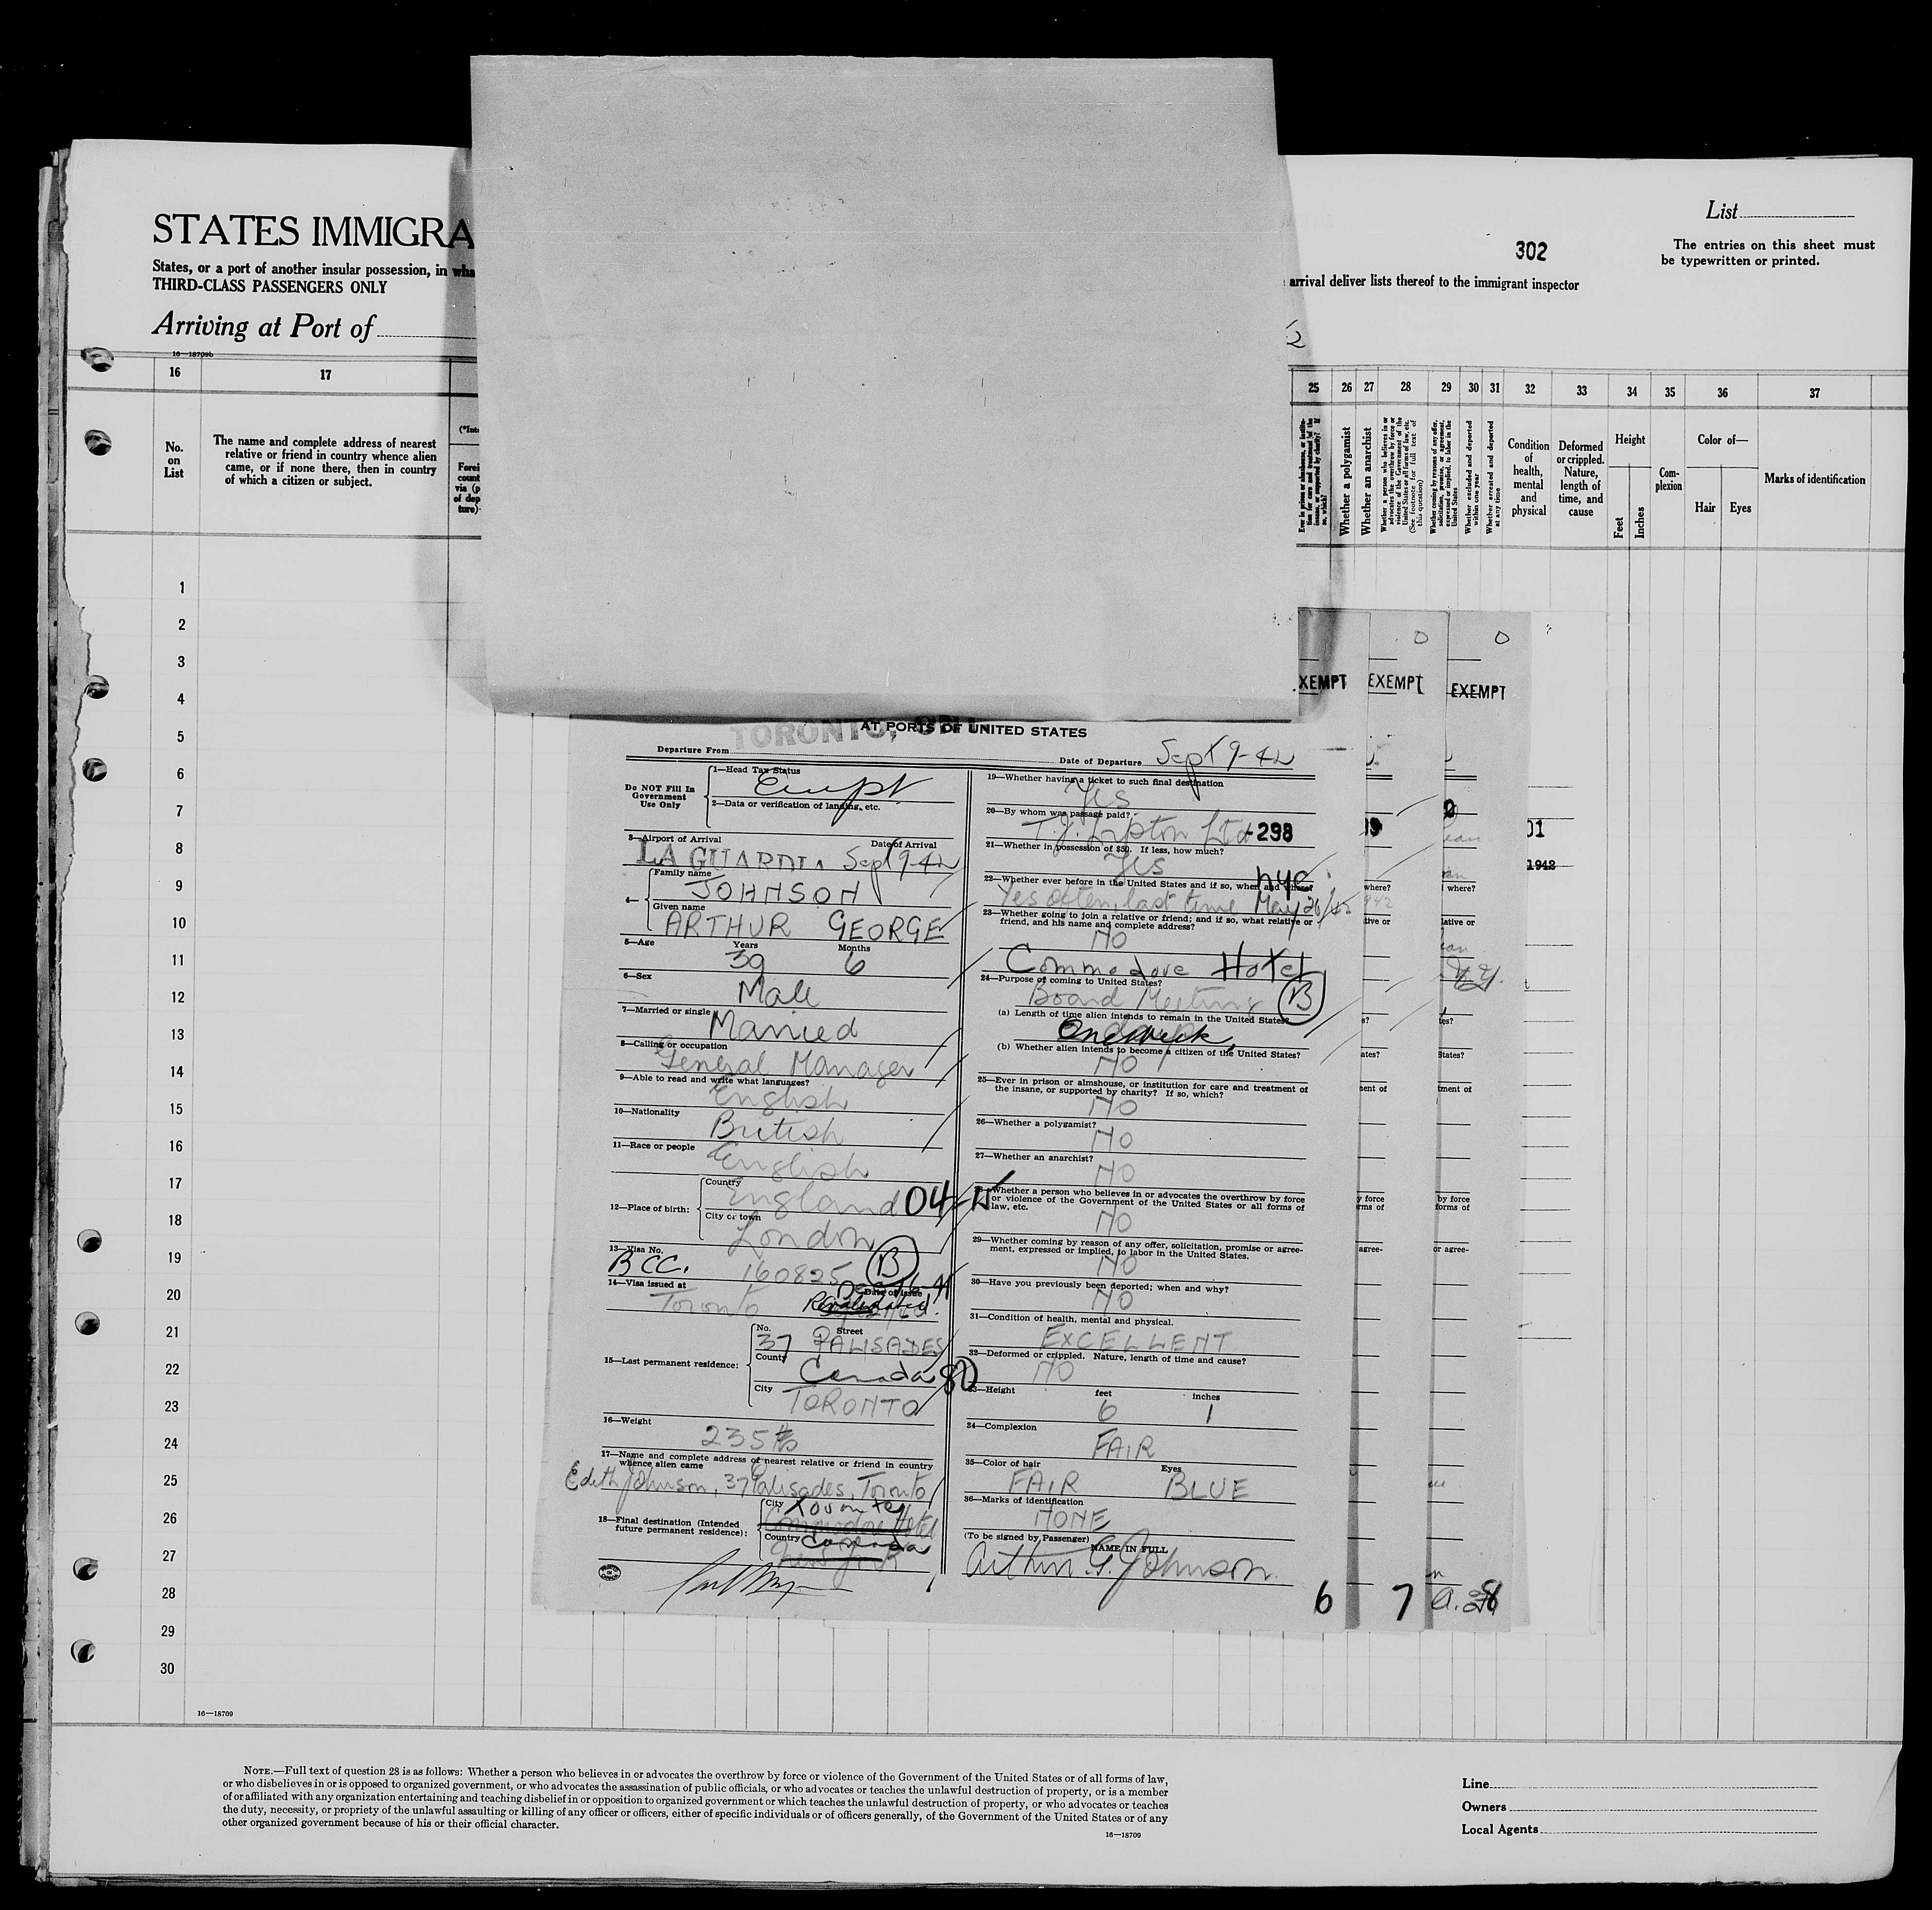 STATES IMMIGRA
States, or a port of another insular possession, in wha
THIRD-CLASS PASSENGERS ONLY
Arriving at Port of
16—18709b
List
302
The entries on this sheet must
be typewritten or printed.
arrival deliver lists thereof to the immigrant inspector
16
17
25
26
27
28
29
30
31
32
33
34
35
36
37
No.
on
List
The name and complete address of nearest
relative or friend in country whence alien
came, or if none there, then in country
of which a citizen or subject.
(*Int
Forei
count
via (p
of dep
ture)
Ever in prison or almshouse, or institu-
tion for care and treatment of the
insane, or supported by charity? If
so, which?
Whether a polygamist
Whether an anarchist
Whether a person who believes in or
advocates the overthrow by force or
violence of the Government of the
United States or all forms of law, etc.
(See footnote for full text of
this question)
Whether coming by reasons of any offer,
solicitation, promise, or agreement,
expressed or implied, to labor in the
United States
Whether excluded and deported
within one year
Whether arrested and deported
at any time
Condition
of
health,
mental
and
physical
Deformed
or crippled.
Nature,
length of
time, and
cause
Height
Feet
Inches
Com-
plexion
Color of—
Hair
Eyes
Marks of identification
1
2
3
4
5
6
7
8
9
10
11
12
13
14
15
16
17
18
19
20
21
22
23
24
25
26
27
28
29
30
XEMPT
EXEMPT
EXEMPT
TORONTO,
AT PORTS OF UNITED STATES
Departure From
Date of Departure Sept 9-42
Do NOT Fill In
Government
Use Only
1—Head Tax Status
Exmpt
2—Data or verification of landing, etc.
3—Airport of Arrival
Date of Arrival
LA GUARDIA Sept 9-42
4—
Family name
JOHNSON
Given name
ARTHUR GEORGE
5—Age
Years
Months
39 6
6—Sex
Male
7—Married or single
Married
8—Calling or occupation
General Manager
9—Able to read and write what languages?
English
10—Nationality
British
11—Race or people
English
12—Place of birth:
Country
England 04-15
City or town
London
13—Visa No.
BCC. 160825 B
14—Visa issued at
Date of issue
Toronto
Revalidated
15—Last permanent residence:
No.
Street
37 PALISADES
County
Canada 80
City
TORONTO
16—Weight
235
17—Name and complete address of nearest relative or friend in country
whence alien came
Edith Johnson, 37 Palisades, Toronto
18—Final destination (Intended
future permanent residence):
City Toronto
Commodore Hotel
Country Canada
New York
19—Whether having a ticket to such final destination
Yes
20—By whom was passage paid?
T.J. Lipton Ltd -298
21—Whether in possession of $50. If less, how much?
Yes
22—Whether ever before in the United States and if so, when and where?
nyc
Yes often, last time May 26/42
23—Whether going to join a relative or friend; and if so, what relative or
friend, and his name and complete address?
NO
Commodore Hotel
24—Purpose of coming to United States?
Board Meeting B
(a) Length of time alien intends to remain in the United States?
One Week,
(b) Whether alien intends to become a citizen of the United States?
NO
25—Ever in prison or almshouse, or institution for care and treatment of
the insane, or supported by charity? If so, which?
NO
26—Whether a polygamist?
NO
27—Whether an anarchist?
NO
Whether a person who believes in or advocates the overthrow by force
or violence of the Government of the United States or all forms of
law, etc.
NO
29—Whether coming by reason of any offer, solicitation, promise or agree-
ment, expressed or implied, to labor in the United States.
NO
30—Have you previously been deported; when and why?
NO
31—Condition of health, mental and physical.
EXCELLENT
32—Deformed or crippled. Nature, length of time and cause?
NO
33—Height
feet
inches
6 1
34—Complexion
FAIR
35—Color of hair
Eyes
FAIR BLUE
36—Marks of identification
NONE
(To be signed by Passenger)
NAME IN FULL
Arthur G. Johnson
6
7
8
01
1942
where?
where?
ative or
lative or
ates?
States?
ment of
tment of
y force
rms of
by force
forms of
agree-
or agree-
16—18709
NOTE.—Full text of question 28 is as follows: Whether a person who believes in or advocates the overthrow by force or violence of the Government of the United States or of all forms of law,
or who disbelieves in or is opposed to organized government, or who advocates the assassination of public officials, or who advocates or teaches the unlawful destruction of property, or is a member
of or affiliated with any organization entertaining and teaching disbelief in or opposition to organized government or which teaches the unlawful destruction of property, or who advocates or teaches
the duty, necessity, or propriety of the unlawful assaulting or killing of any officer or officers, either of specific individuals or of officers generally, of the Government of the United States or of any
other organized government because of his or their official character.
16—18709
Line
Owners
Local Agents